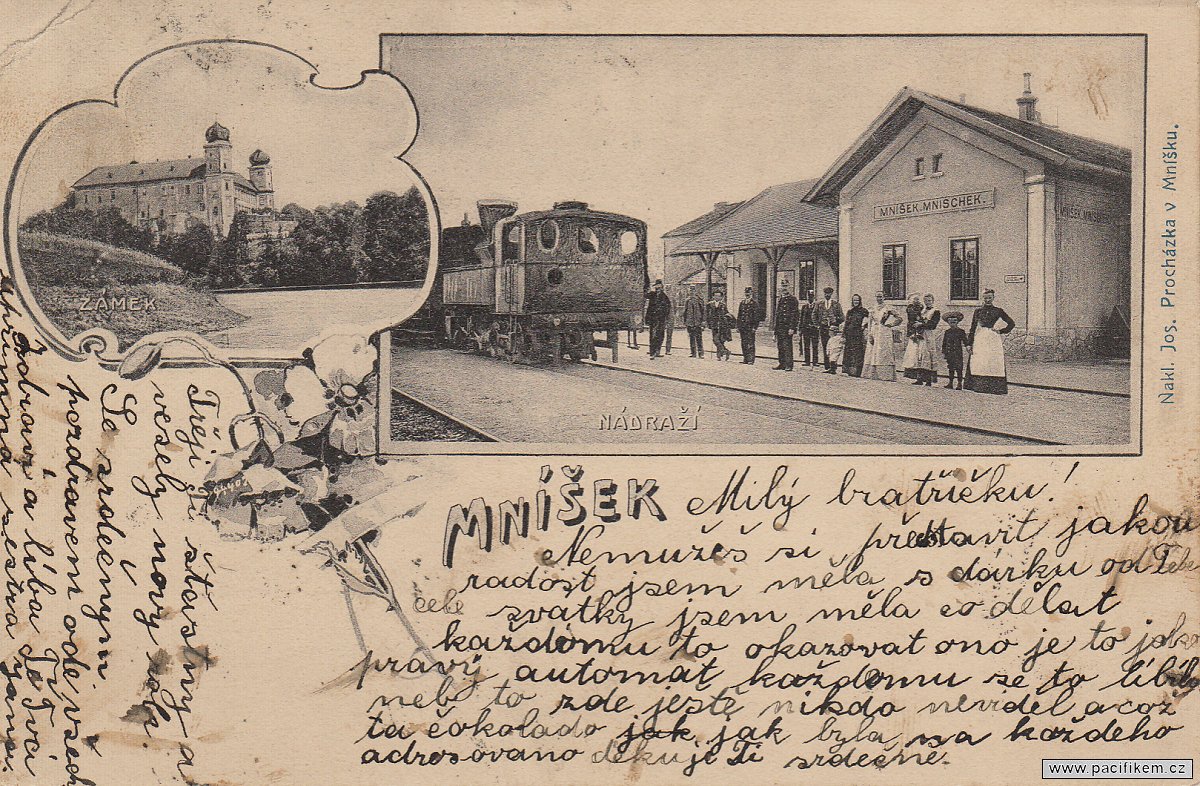 ZÁMEK
MNÍŠEK. MNISCHEK.
MNÍŠEK. MNISCHEK
NÁDRAŽÍ
Nakl. Jos. Procházka v Mníšku.
MNÍŠEK
Milý bratříčku!
Nemužeš si představit jakou
radost jsem měla s dárku od Tebe
cele svátky jsem měla co dělat
každómu to okazovat ono je to jako
pravý automat každemu se to líbilo
neb to zde ještě nikdo neviděl a což
ta čokolado jak jak byla na každého
adrosováno děkuji Ti srdečně.
Těji Ti šťastny a
veselý novy rok.
Se i
srdečnym
pozdravem ode všech
Zdraví a líba Te Tvá
upřimna sestra Jana.
www.pacifikem.cz